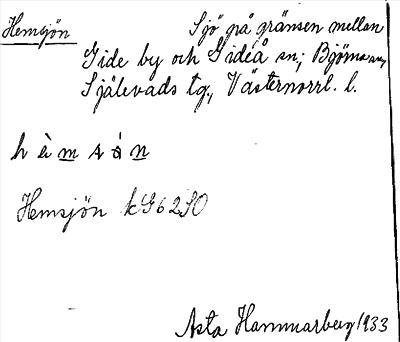 Hemsjön Sjö på gränsen mellan
Gide by och Gideå sn; Björna sn,
Själevads tg., Västernorrl. l.
h è m s ó n
Hemsjön kG62SO
Asta Hammarberg 1933